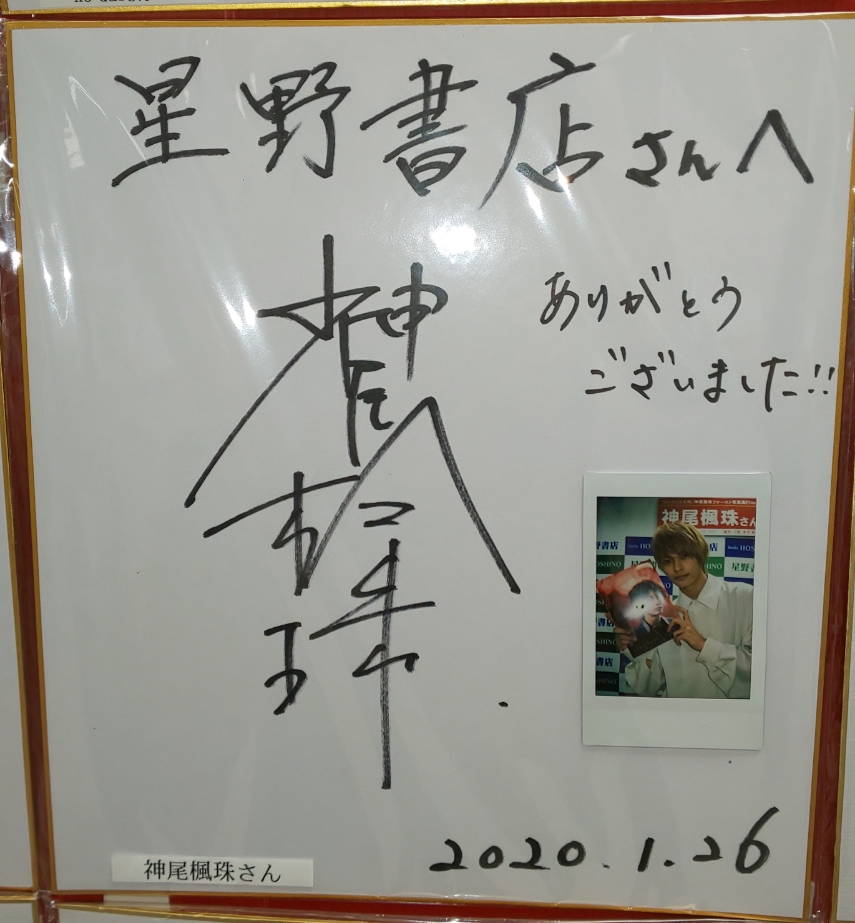 星野書店さんへ
ありがとう
ございました!!
神尾楓珠
神尾楓珠さん
星野書店
HOSHINO
2020.1.26
神尾楓珠さん